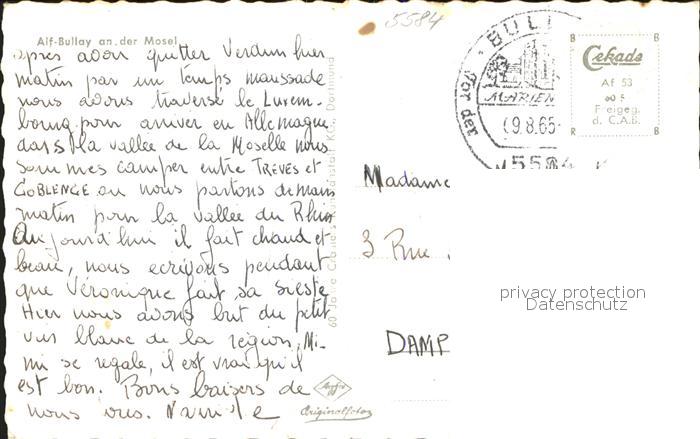 Alf-Bullay an der Mosel
après avoir quitter Verdun hier
matin par un temps maussade
nous avons traversé le Luxem-
bourg pour arriver en Allemagne
dans la vallée de la Moselle nous
sommes camper entre TREVES et
COBLENCE ou nous partons demain
matin pour la vallée du Rhin
Aujourd'hui il fait chaud et
beau, nous ecrivons pendant
que Véronique fait sa sieste
Hier nous avons but du petit
vin blanc de la région, Mi-
mi se regale, il est vrai qu'il
est bon. Bons baisers de
nous
Agfa
Originalfoto
5584
BULL
der
MARIEN
9.8.65
558
Cekade
Af 53
Freigeg.
d. C.A.B.
B B
R B
Madame
3 Rue
DAMP
privacy protection
Datenschutz